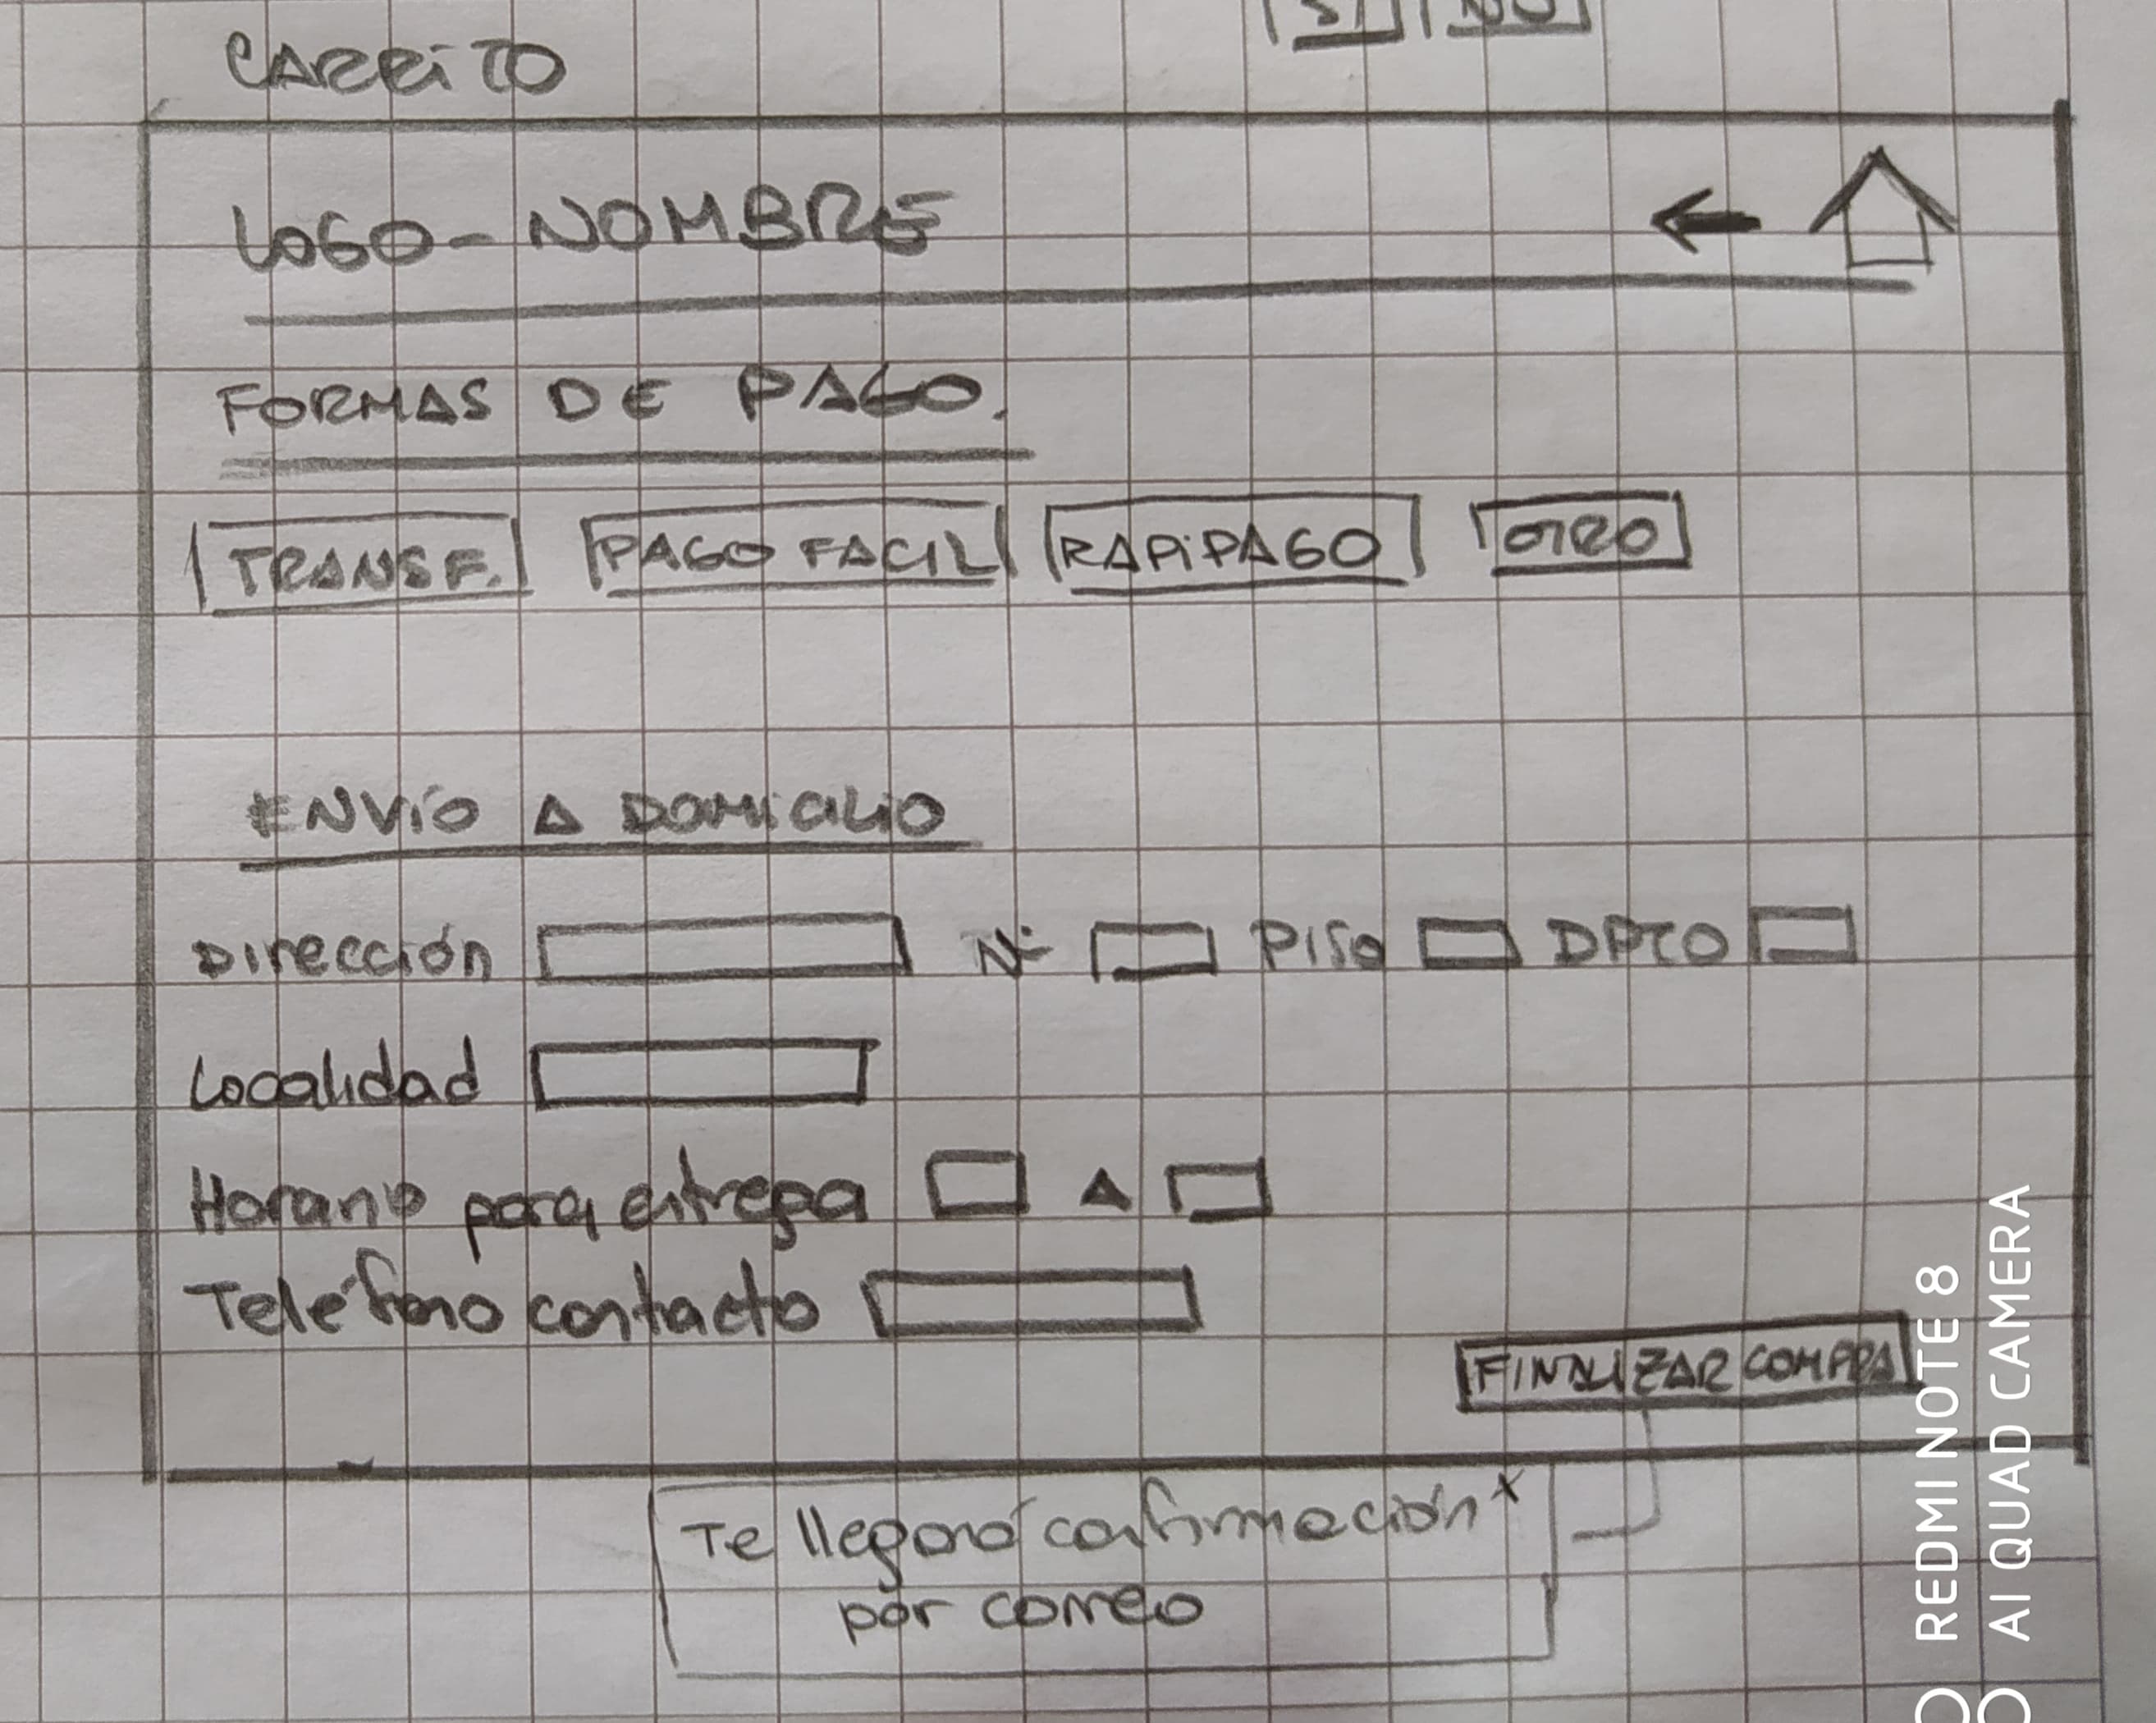 SI NO
CARRITO
LOGO - NOMBRE
FORMAS DE PAGO.
TRANSF. PAGO FACIL RAPIPAGO OTRO
ENVÍO A DOMICILIO
Dirección Nº PISO DPTO
Localidad
Horario para entrega A
Teléfono contacto
FINALIZAR COMPRA
Te llegará confirmación x
por correo
REDMI NOTE 8
AI QUAD CAMERA